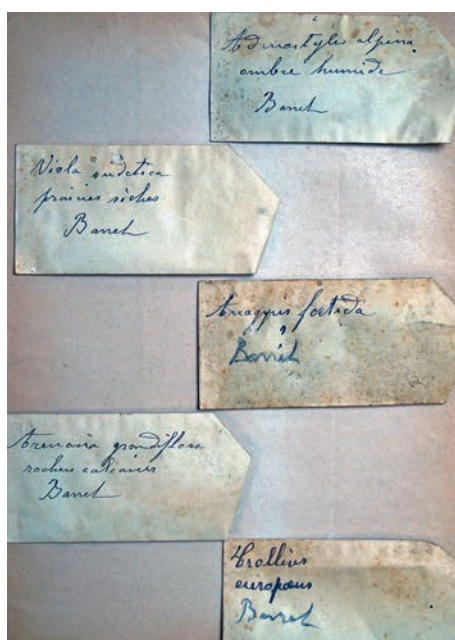 Adenostyles alpina
ombre humide
Barrel
Viola sudetica
prairies sèches
Barrel
Anagyris foetida
Barrel
Arenaria grandiflora
rochers calcaires
Barrel
Trollius
europœus
Barrel